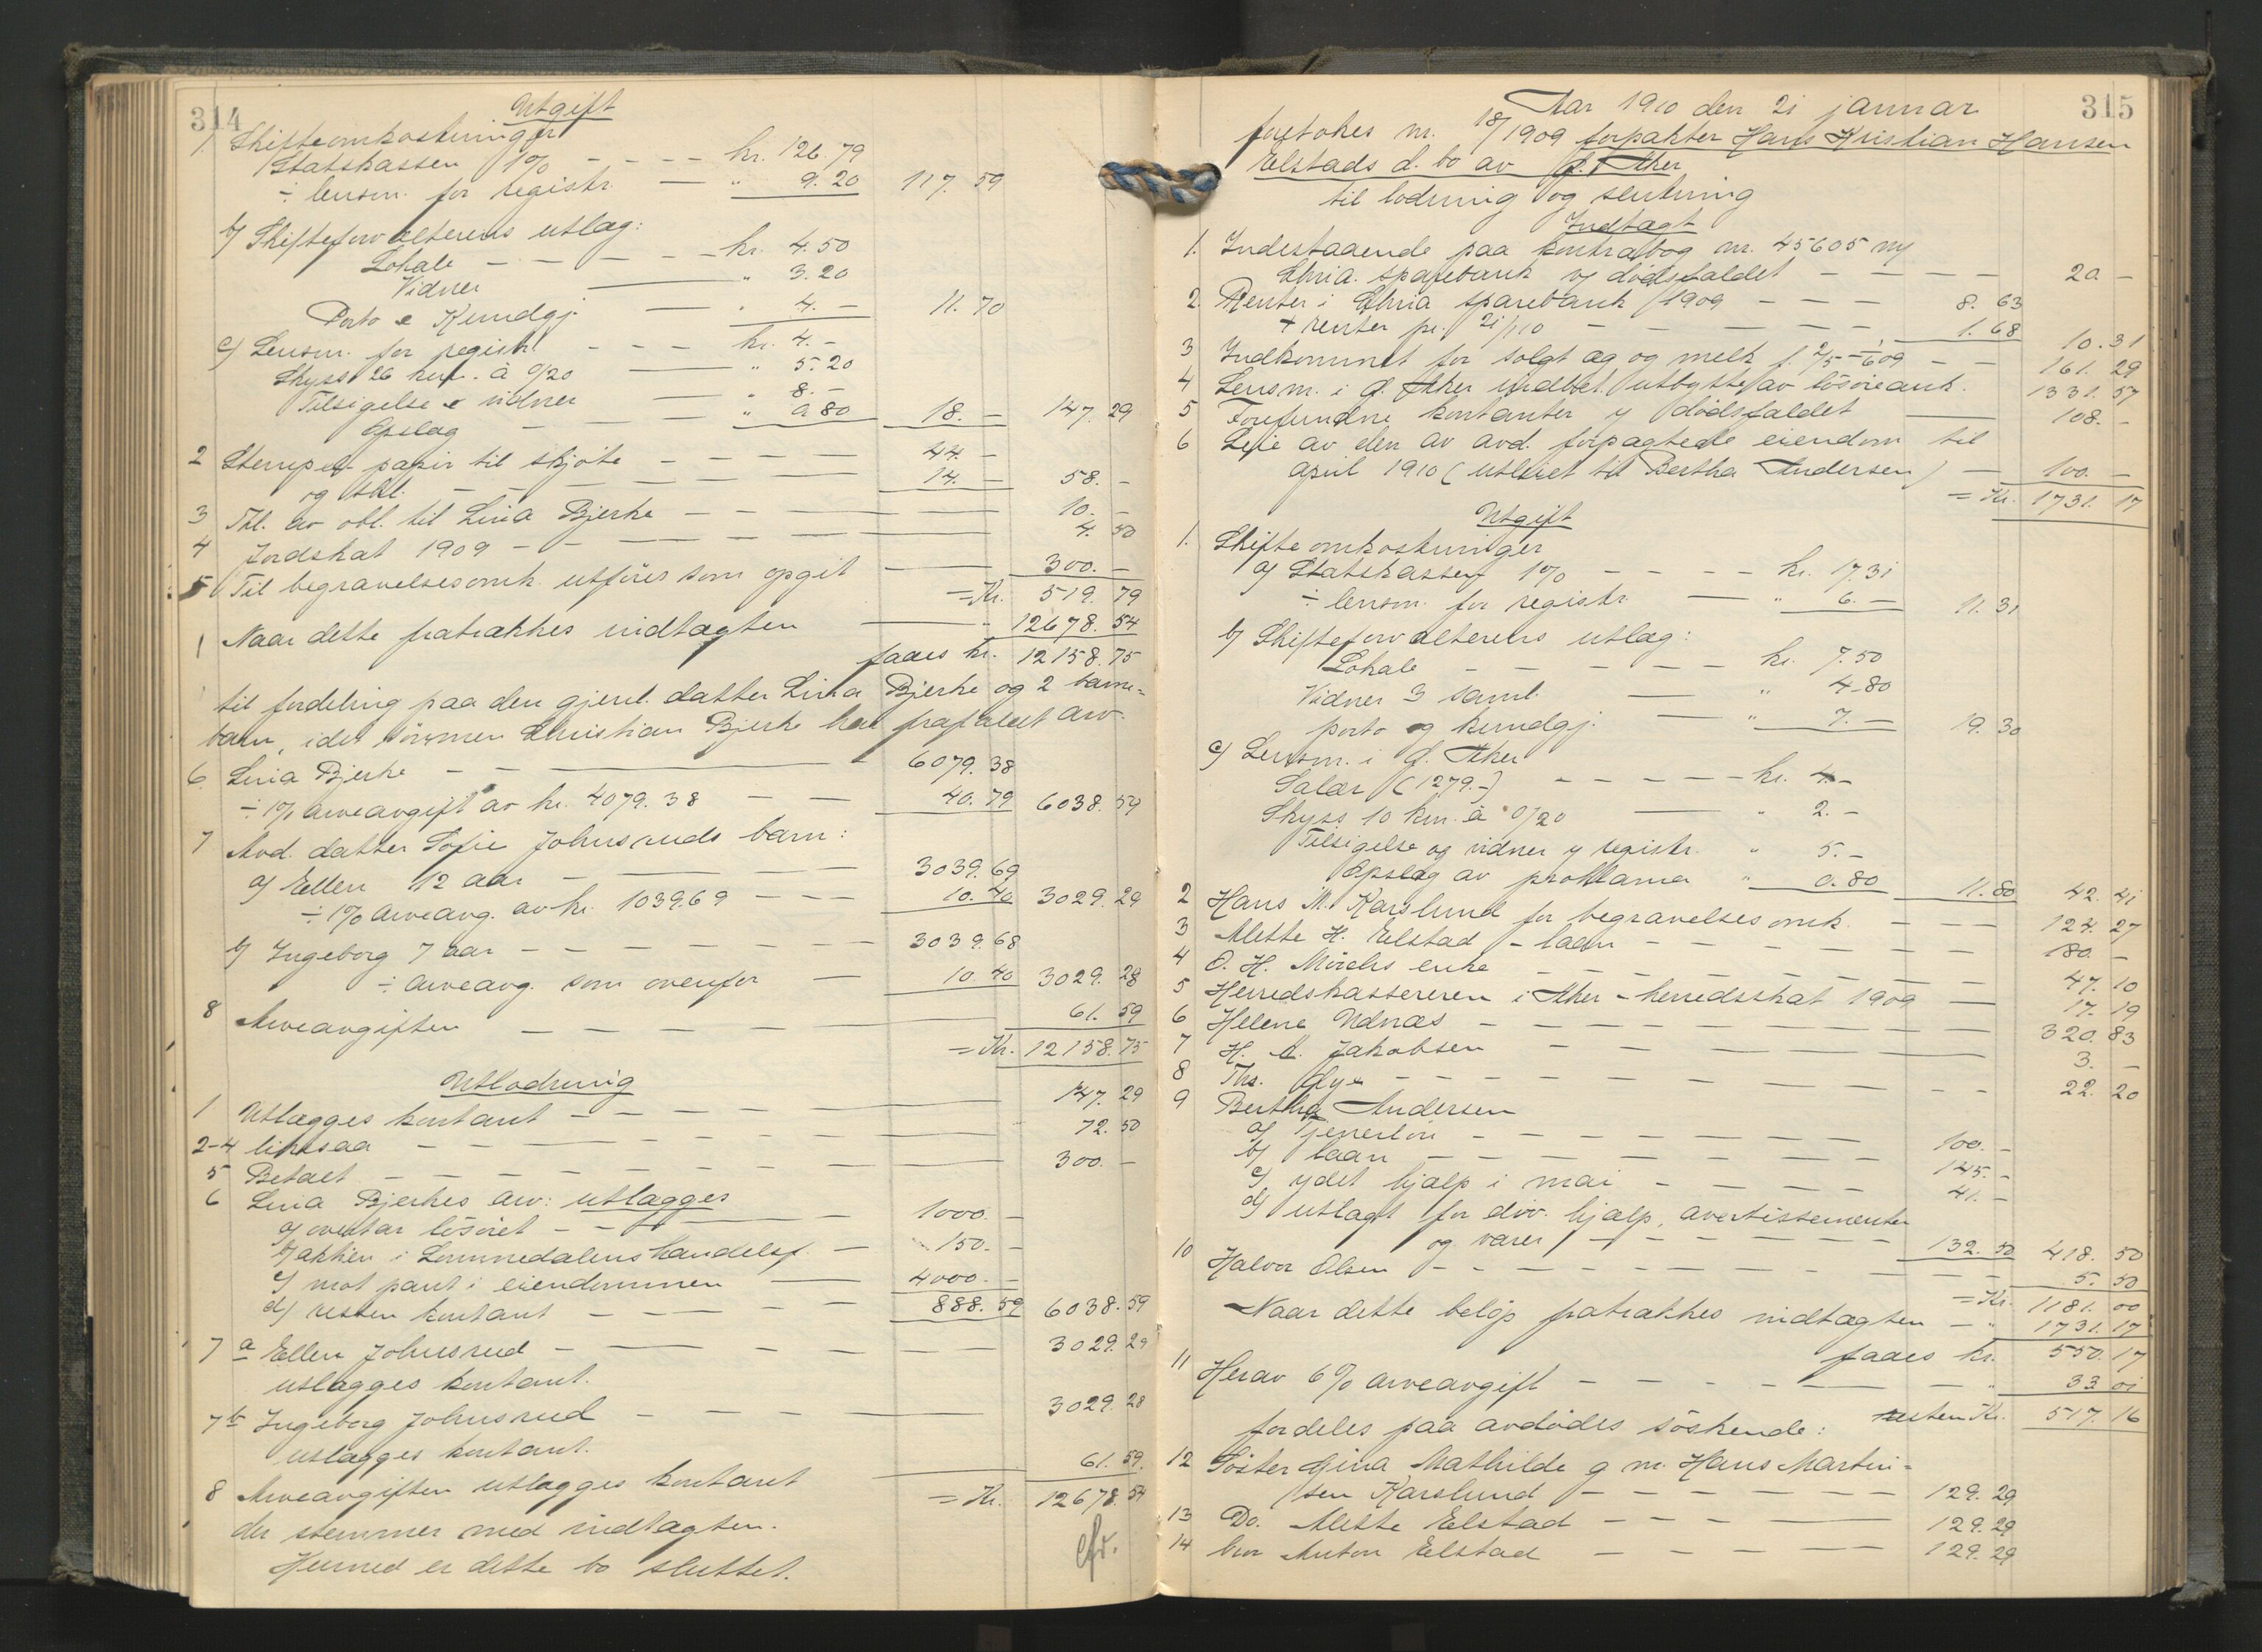 314
Utgift
1 Skifteomkostninger
Statskassen 1% - - - - kr. 126.79
÷ lensm. for registr. — " 9.20 117.59
b/ Skifteforvalterens utlæg:
Lokale - - - - - kr. 4.50
Vidner — " 3.20
Porto & Kundgj. — " 4.- 11.70
c/ Lensm. for registr. - - - kr. 4.-
Skyss 26 km. à 0/20 — " 5.20
Tilsigelse & vidner — " 8.-
Opslag — " 0.80 18.- 147.29
2 Stempelt papir til skjøte - - - - - 44.-
og tbl. - - - - - 14.- 58.-
3 Tbl. av obl. til Lina Bjerke - - - 10.-
4 Jordskat 1909 - - - 4.50
5 Til begravelsesomk. utføres som opgit — 300.-
= Kr. 519.79
Naar dette fratrækkes indtægten — " 12678.54
faaes kr. 12158.75
til fordeling paa den gjenl. datter Lina Bjerke og 2 barne-
barn, idet sønnen Christian Bjerke har frafaldt arv.
6. Lina Bjerke - - — 6079.38
÷ 1% arveavgift av kr. 4079.38 - - 40.79 6038.59
7 Avd. datter Sofie Johnsruds barn:
a/ Ellen 12 aar - - - 3039.69
÷ 1% arveavg. av kr. 1039.69 - - - 10.40 3029.29
b/ Ingeborg 7 aar - - - - - 3039.68
÷ arveavg. som ovenfor — 10.40 3029.28
8 Arveavgiften - - - - 61.59
= Kr. 12158.75
Utlodning
1 Utlægges kontant - - - - 147.29
2-4 likesaa - - - - 72.50
5 Betalt - - - - 300.-
6 Lina Bjerkes arv: utlægges
a/ overtar løsøret - - — 1000.-
b/ aktier i Lommedalens handelsf. — 150.-
c/ mot pant i eiendommen — 4000.-
d/ resten kontant - - - - 888.59 6038.59
7a Ellen Johnsrud - - - - 3029.29
utlægges kontant.
7b Ingeborg Johnsrud - - - 3029.28
utlægges kontant.
8 Arveavgiften utlægges kontant 61.59.
= Kr. 12678.54
der stemmer med indtægten.
Hermed er dette bo sluttet.
315
Aar 1910 den 21 januar
foretokes nr. 18/1909 forpakter Hans Kristian Hansen
Elstads d. bo av Ø. Aker
til lodning og slutning
Indtægt
1. Indestaaende paa kontrabog nr. 45605 ny
Chria. sparebank v/ dødsfaldet - - - - 20.-
2. Renter i Chria sparebank 1909 - - - 8.63
+ renter pr. 21/1 10 - - - - - 1.68 10.31
3 Indkommet for solgt æg og melk f. 2/5 - 1/6 09 - 161.29
4 Lensm. i Ø. Aker indbet. utbytte av løsøreauk. 1331.57
5 Forefundne kontanter v/ dødsfaldet — 108.-
6 Leie av den av avd. forpagtede eiendom til
april 1910 (utleiet til Bertha Andersen) — 100.-
= Kr. 1731.17
Utgift
1. Skifteomkostninger
a/ Statskassen 1% - - - - kr. 17.31
÷ lensm. for registr. — " 6.- 11.31
b/ Skifteforvalterens utlæg:
Lokale - - - - - kr. 7.50
Vidner 3 saml. — " 4.80
porto og kundgj. — " 7.- 19.30
c/ Lensm. i Ø. Aker
Salær (1279.-) - - - - - kr. 4.-
Skyss 10 km. à 0/20 — " 2.-
Tilsigelse og vidner v/ registr. " 5.-
Opslag av proklama " 0.80 11.80 42.41
2 Hans M. Karslund for begravelsesomk. - - - 124.27
3 Mette H. Elstad - laan - - - - 180.-
4 O. H. Mørchs enke - - - - 47.10
5 Herredskassereren i Aker - herredsskat 1909 — 17.19
6 Helene Udnæs - - - - 320.83
7 H. A. Jakobsen - - - 3.-
8 Ths. Flye - - - - 22.20
9 Bertha Andersen
a/ Tjenerløn - - - - - 100.-
b/ laan - - - - - 145.-
c/ ydet hjælp i mai - - - - 41.-
d/ utlagt for div. hjælp, avertissementer
og varer - - - - - 132.50 418.50
10 Halvor Olsen - - - - - 5.50
= Kr. 1181.00
Naar dette beløp fratrækkes indtægten - " 1731.17
faaes kr. 550.17
11 Herav 6% arveavgift - - - - - " 33.01
resten Kr. 517.16
fordeles paa avdødes søskende:
12 Søster Gina Mathilde g. m. Hans Martin-
sen Karslund - - - - - 129.29
13 Do. Mette Elstad - - - — 129.29
14 bror Anton Elstad - - - — 129.29